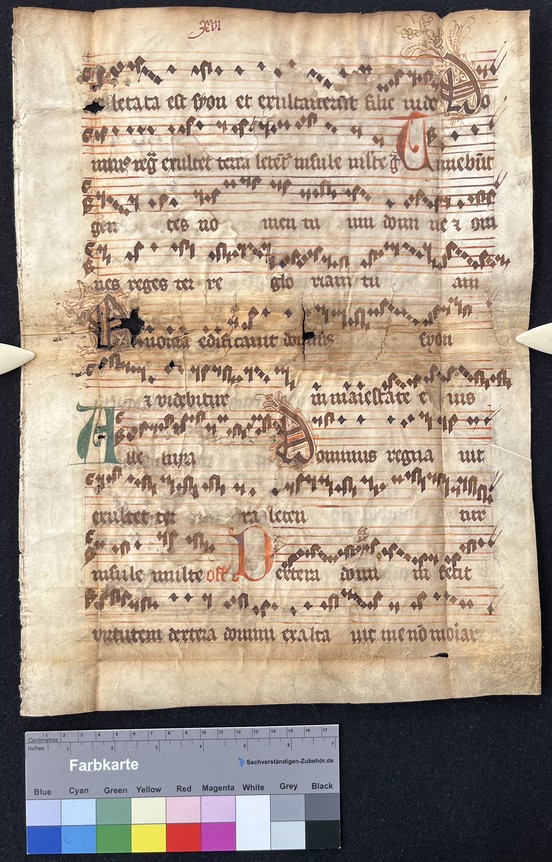 xvi
letata est syon et exultaverunt filie iude Do
minus reg exultet terra letent insule multe g Timebunt
gen tes no men tu um domi ne et om
nes reges ter re glo riam tu am
Quoniam edificauit dominus syon
et videbitur in maiestate et uis
Alle luya Dominus regna uit
exultet ter ra leten tur
insule multe off Dextera domi ni fecit
virtutem dextera domini exalta uit me no moiar
Centimetres 1 2 3 4 5 6 7 8 9 10 11 12 13 14 15 16 17
Inches 1 2 3 4 5 6
Farbkarte Sachverständigen-Zubehör.de
Blue Cyan Green Yellow Red Magenta White Grey Black